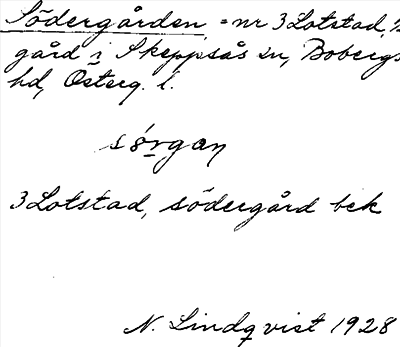 Södergården = nr 3 Lotstad,
gård i Skeppsås sn, Bobergs
hd, Österg. l.
sörgan
3 Lotstad, södergård bek
N. Lindqvist 1928